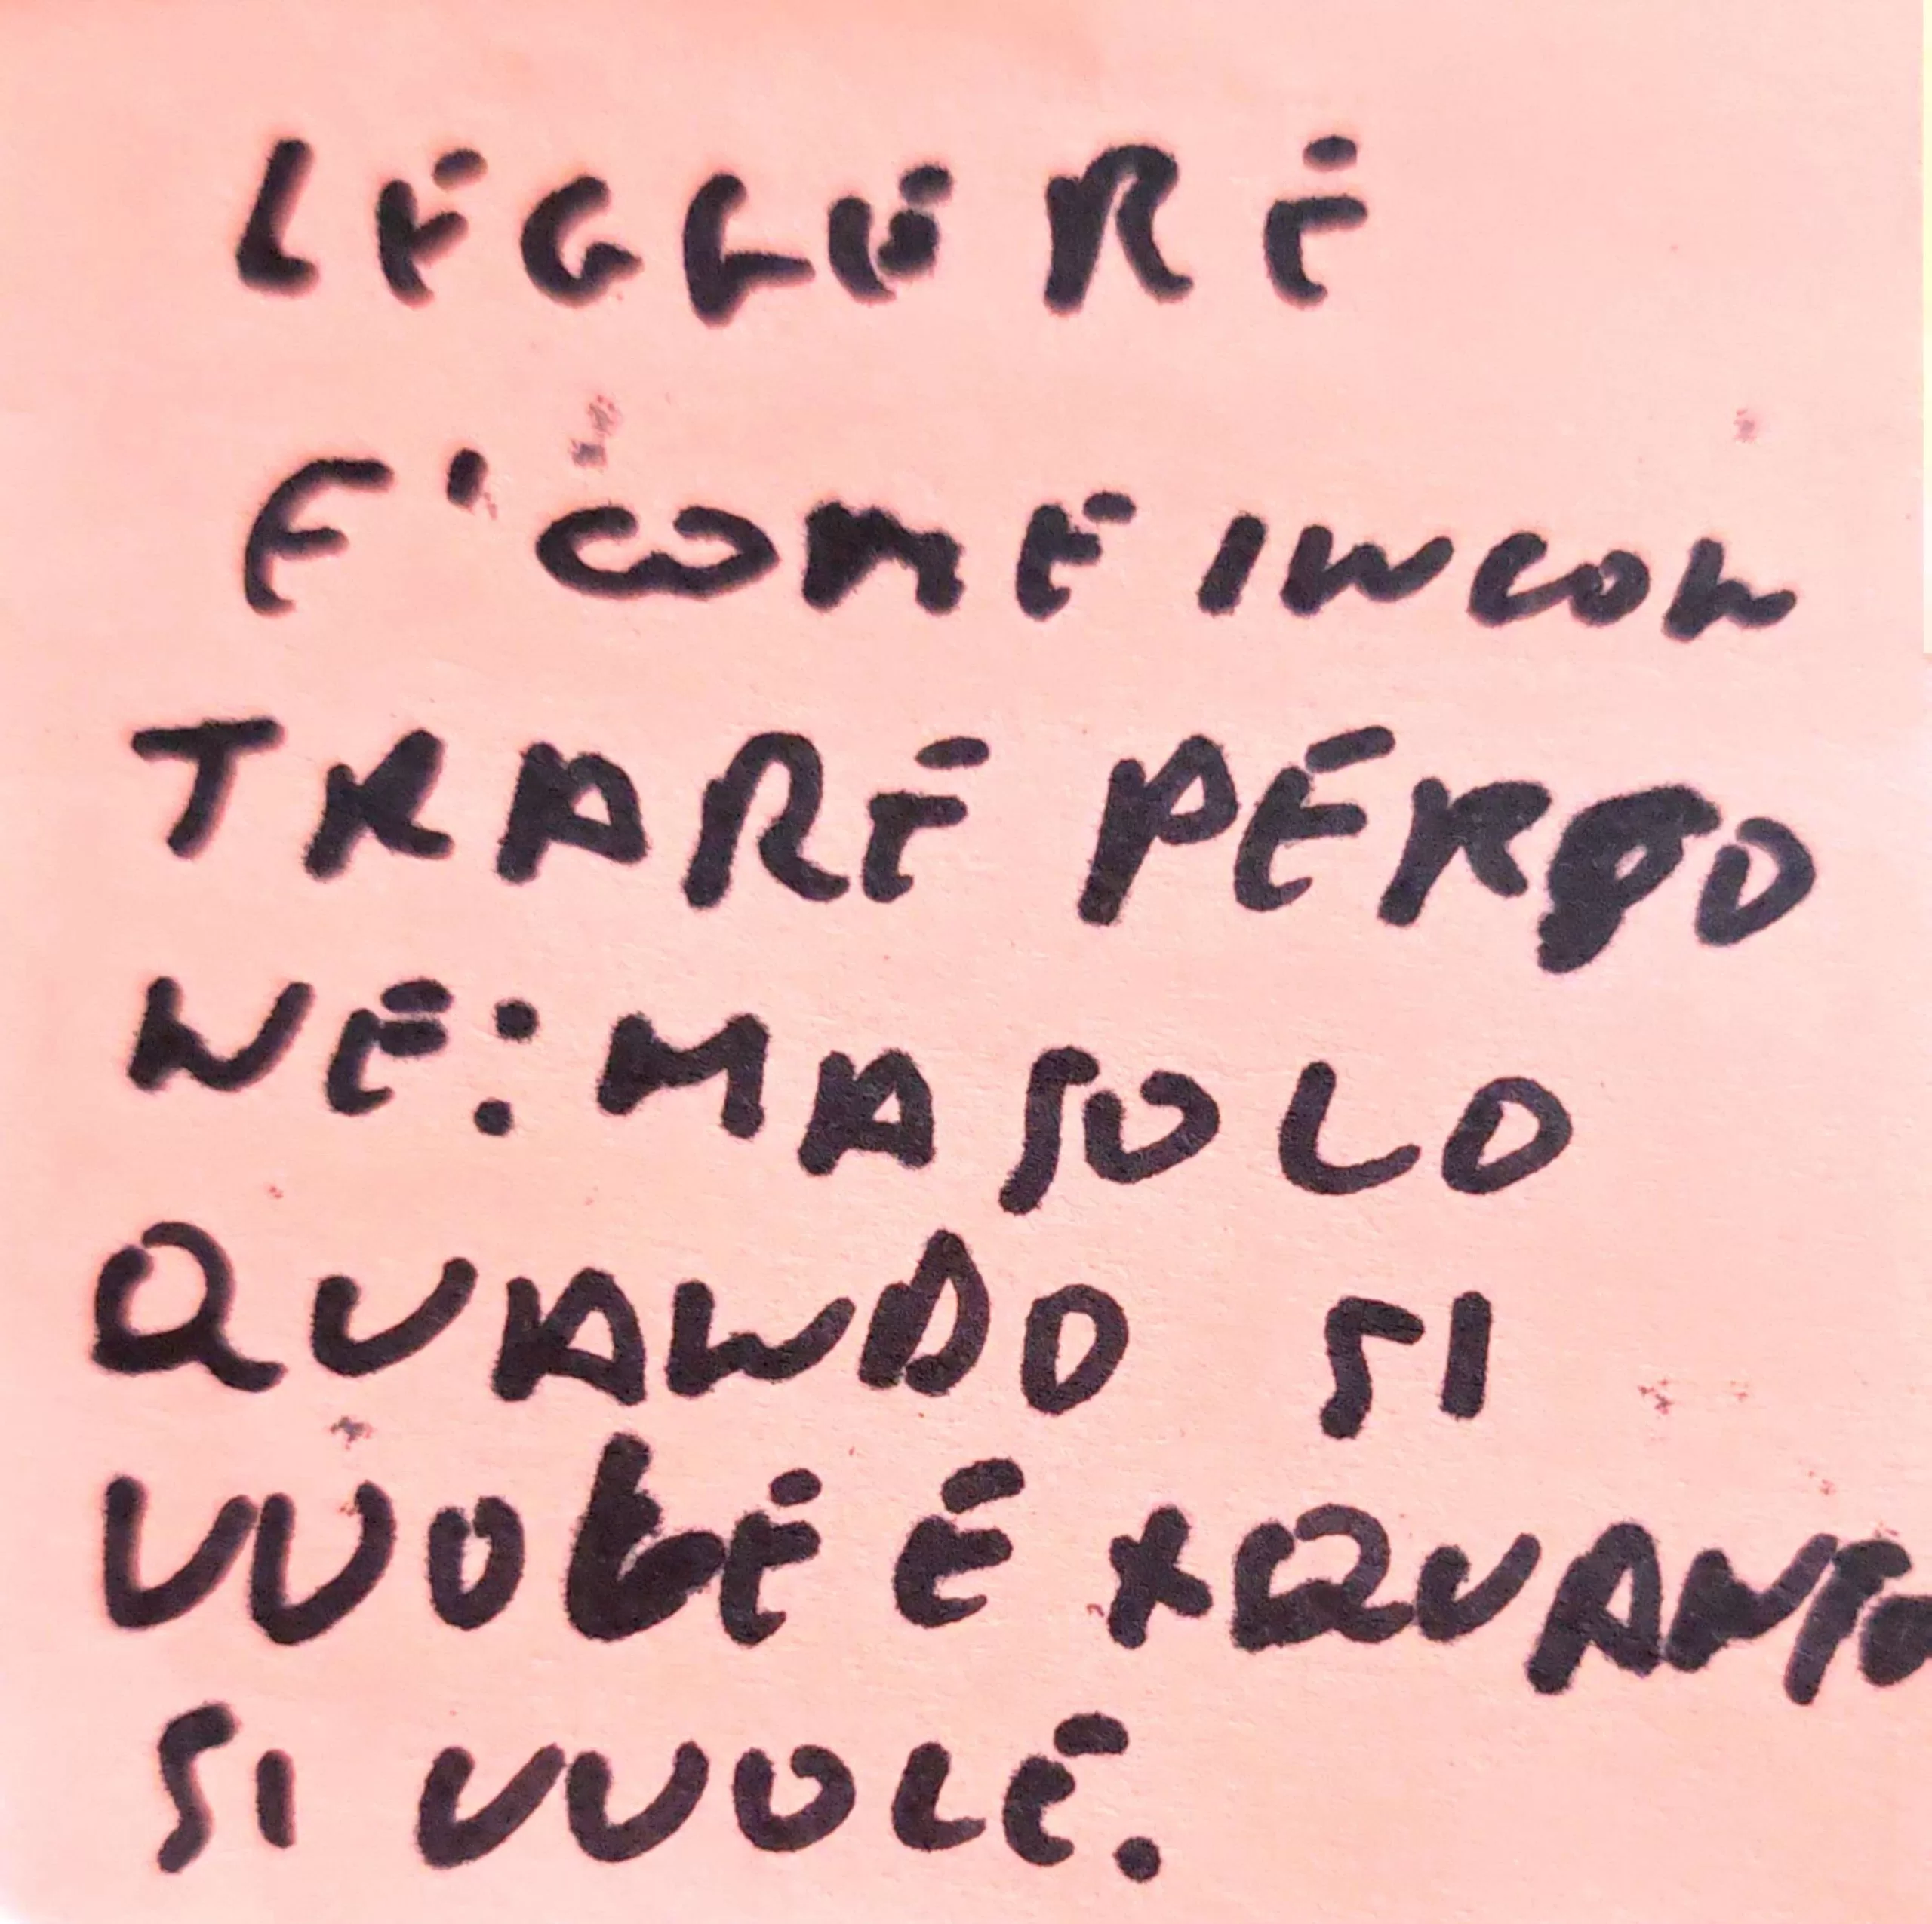 LEGGERE
E' COME INCON
TRARE PERSO
NE: MA SOLO
QUANDO SI
VUOLE E XQUANTO
SI VUOLE.